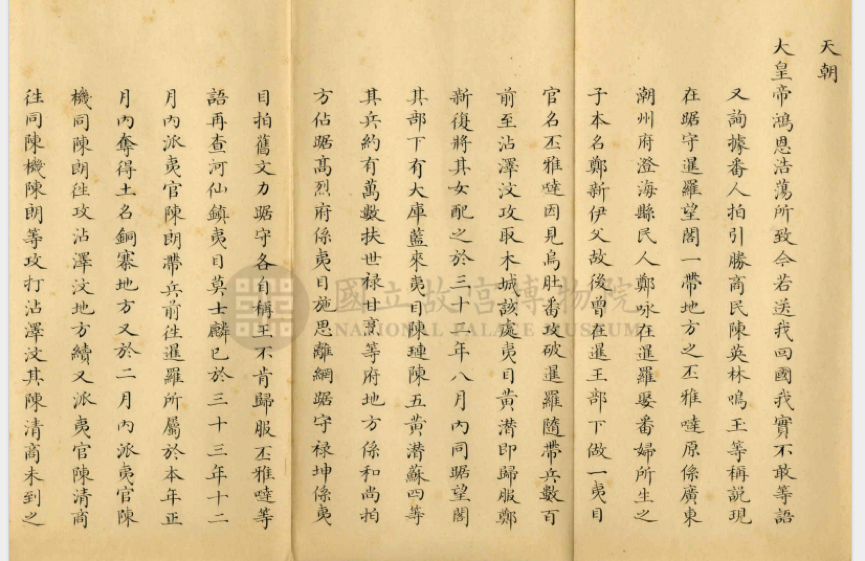 天朝
大皇帝鴻恩浩蕩所致今若送我回國我實不敢等語
又詢據番人拍引勝商民陳英林鳴王等稱說現
在踞守暹羅望閣一帶地方之丕雅噠原係廣東
潮州府澄海縣民人鄭咏在暹羅娶番婦所生之
子本名鄭新伊父故後曾在暹王部下做一夷目
官名丕雅噠因見烏肚番攻破暹羅隨帶兵數百
前至沾澤汶攻取木城該處夷目黃潜即歸服鄭
新復將其女配之於三十二年八月內同踞望閣
其部下有大庫藍來夷目陳璉陳五黃潜蘇四等
其兵約有萬數扶世禄甘烹等府地方係和尚拍
方佔踞髙烈府係夷目施思離綱踞守禄坤係夷
目拍舊文力踞守各自稱王不肯歸服丕雅噠等
語再查河仙鎮夷目莫士麟已於三十三年十二
月內派夷官陳朗帶兵前徃暹羅所屬於本年正
月內奪得土名銅寨地方又於二月內派夷官陳
機同陳朗徃攻沾澤汶地方續又派夷官陳清商
徃同陳機陳朗等攻打沾澤汶其陳清商未到之
國立故宮博物院
NATIONAL PALACE MUSEUM